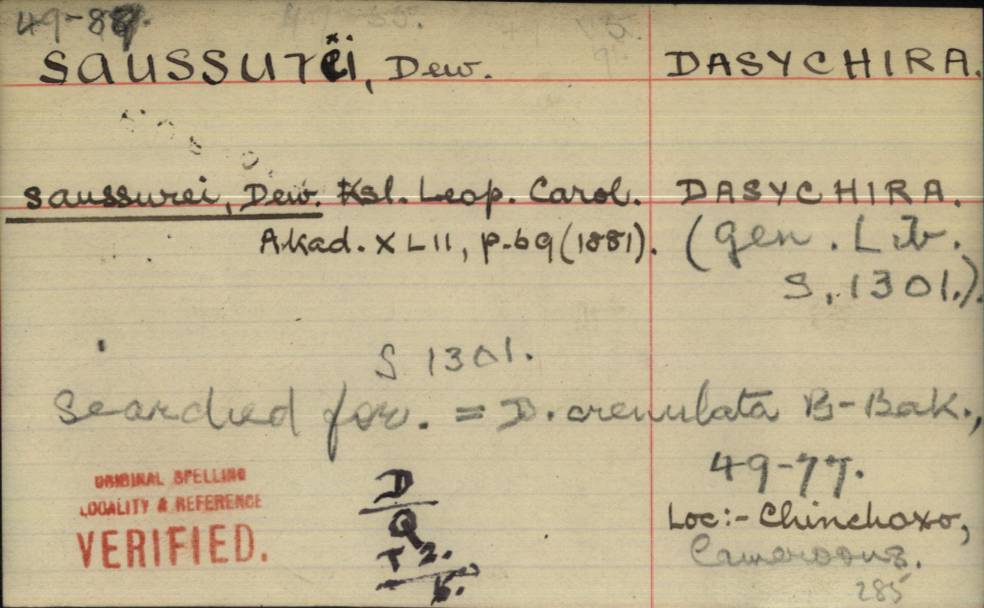 49-88.
saussurei, Dew. DASYCHIRA.
saussurei, Dew. Ksl. Leop. Carol. DASYCHIRA.
Akad. XLII, p.69 (1881). (Gen. Lib.
S. 1301.).
S 1301.
Searched for. = D. crenulata B-Bak.,
49-77.
ORIGINAL SPELLING
LOCALITY & REFERENCE
VERIFIED.
D
Q
T 2.
5.
Loc:- Chinchoxo,
Cameroons.
285